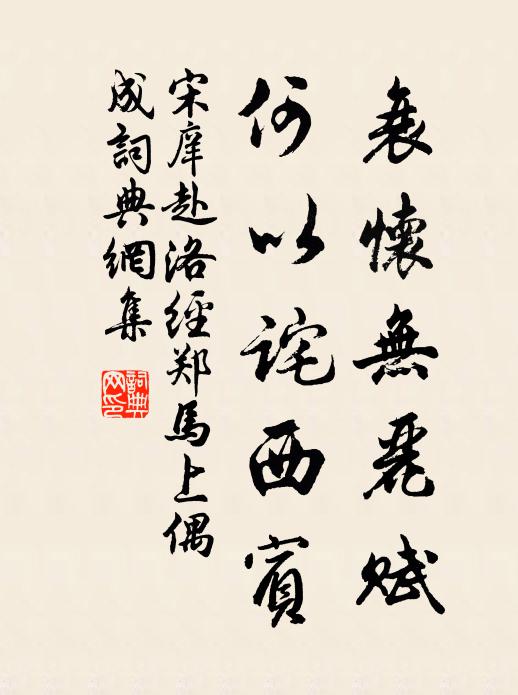 衰懷無麗賦
何以詫西賓
宋庠赴洛經郑馬上偶
成詞典網集
詞典
网印